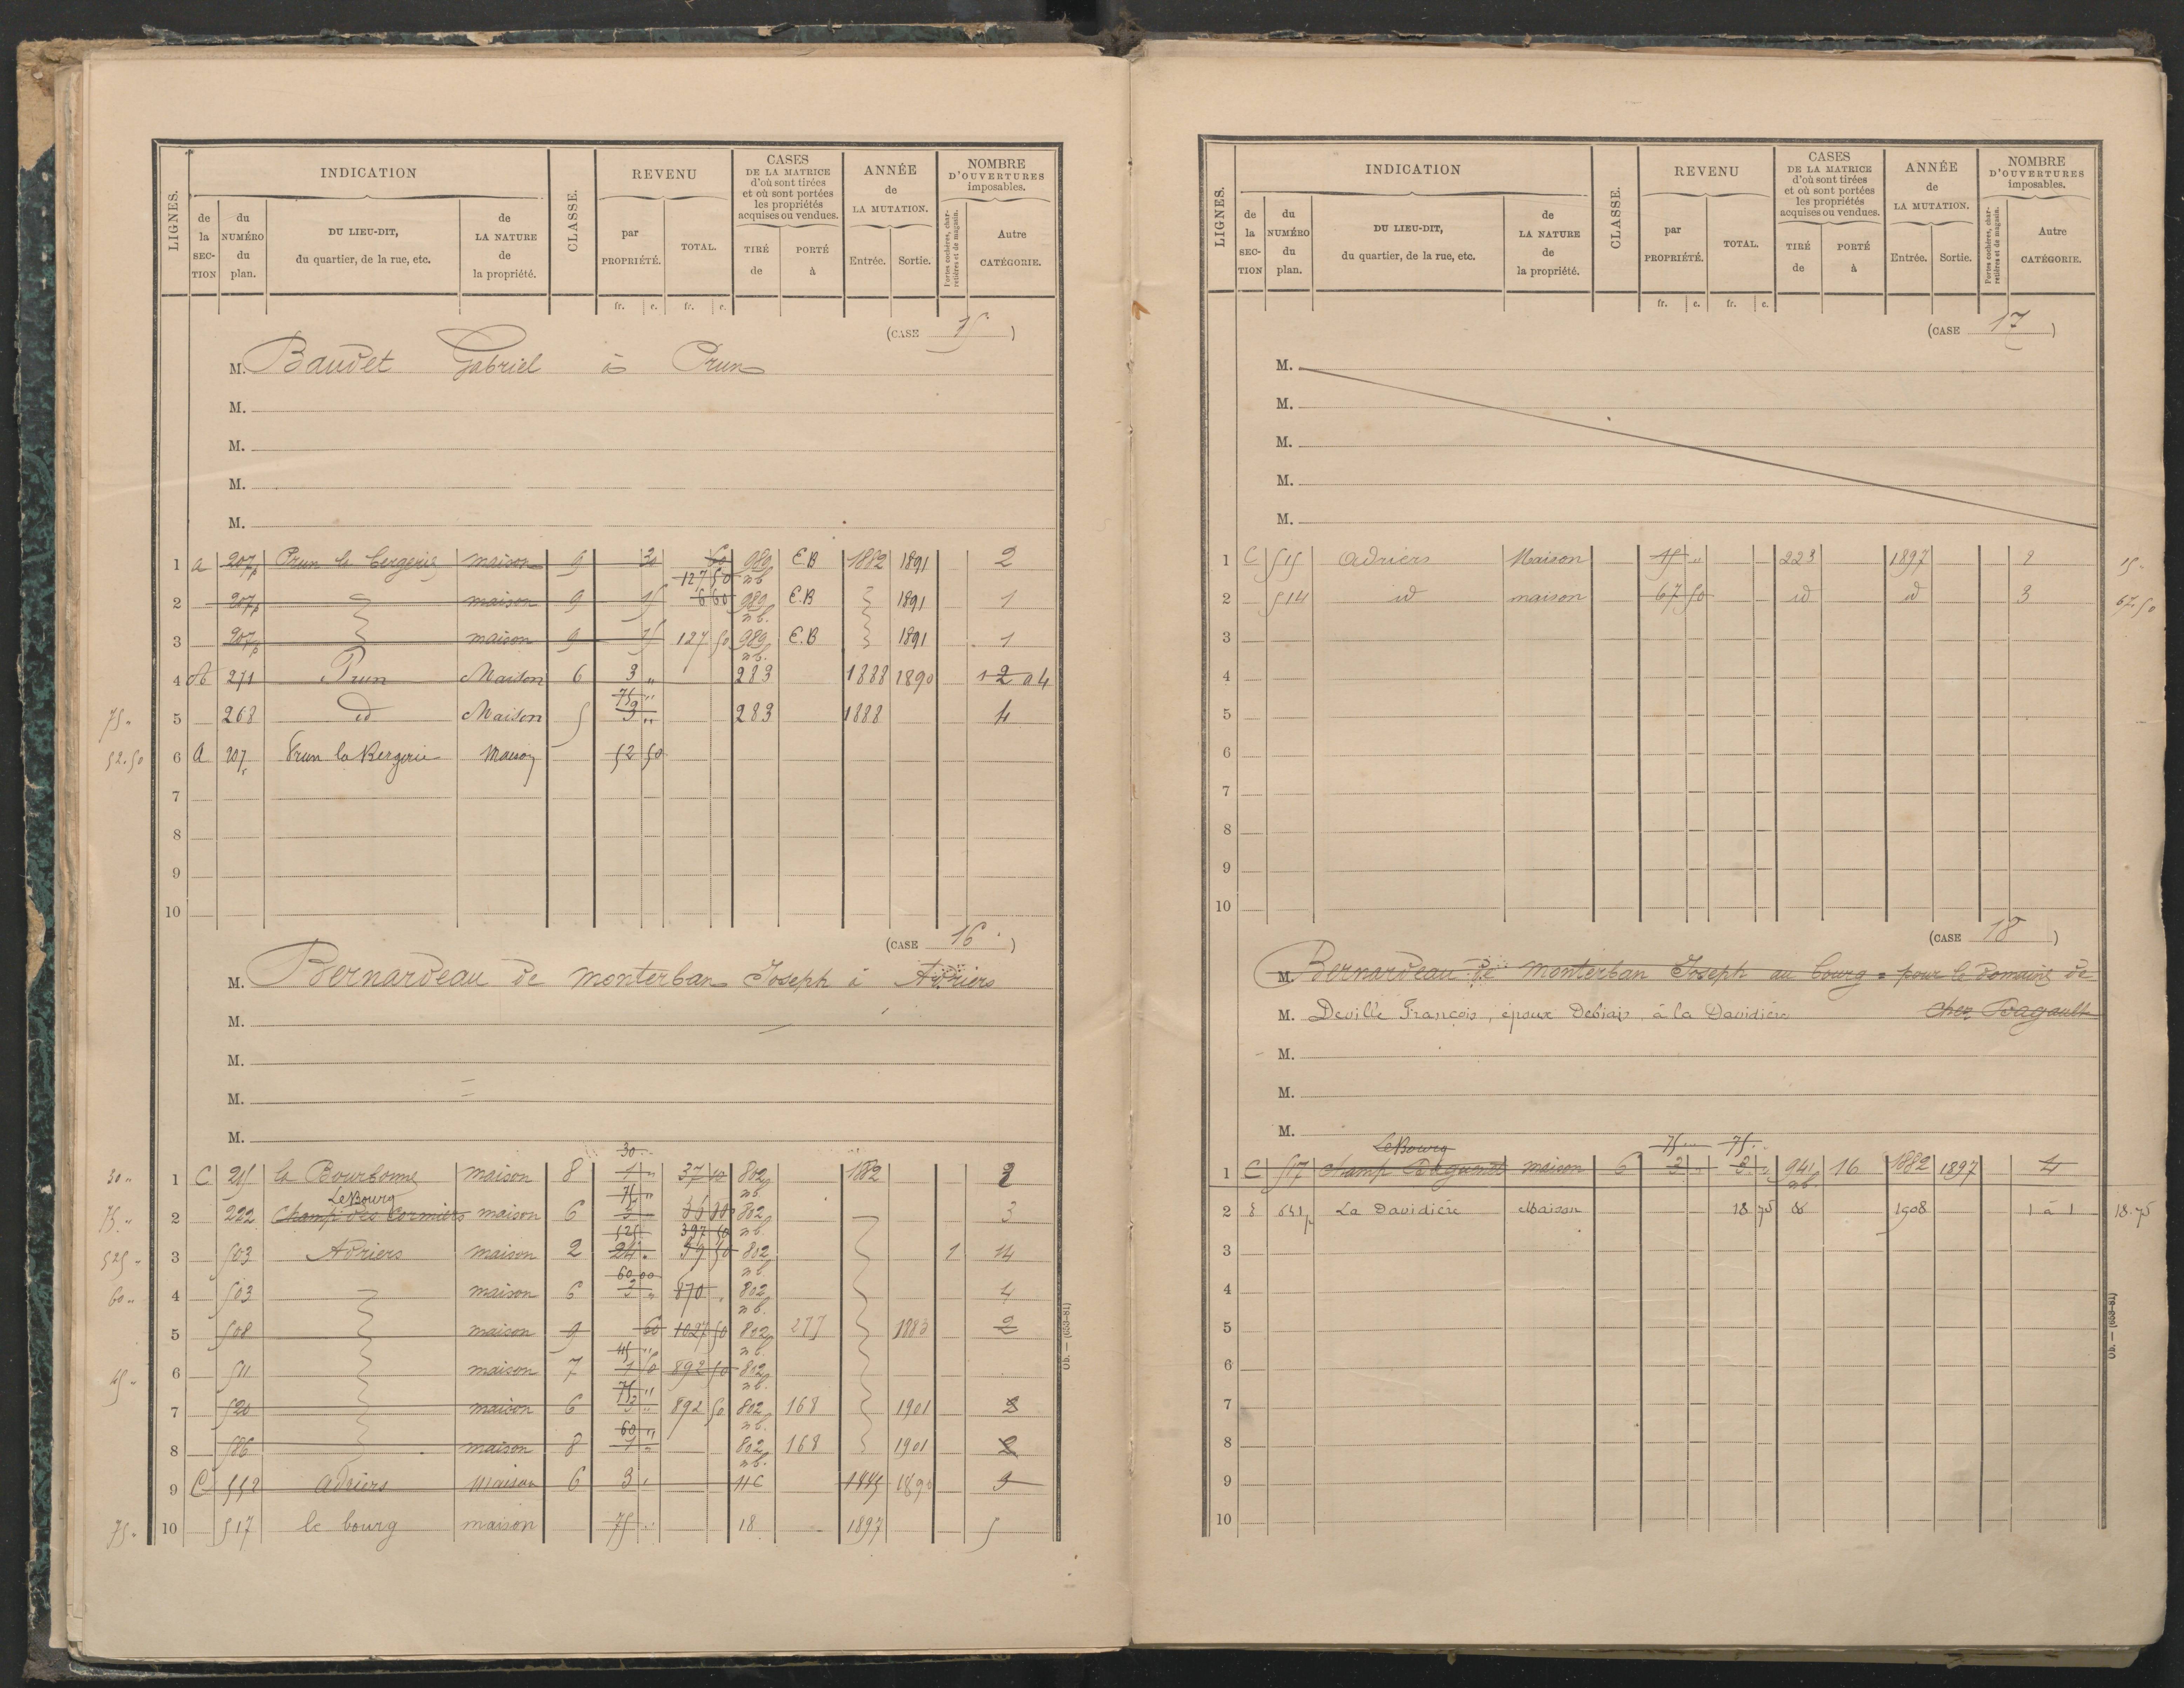 LIGNES.
INDICATION
de la SECTION
du NUMÉRO du plan.
DU LIEU-DIT, du quartier, de la rue, etc.
de LA NATURE de la propriété.
CLASSE.
REVENU
par PROPRIÉTÉ.
TOTAL.
fr. c. fr. c.
CASES DE LA MATRICE d'où sont tirées et où sont portées les propriétés acquises ou vendues.
TIRÉ de
PORTÉ à
ANNÉE de LA MUTATION.
Entrée. Sortie.
NOMBRE D'OUVERTURES imposables.
Portes cochères, charretières et de magasin.
Autre CATÉGORIE.
(CASE 15)
M. Baudet Gabriel à Prun
M.
M.
M.
M.
1 a 207p Prun la bergerie maison 9 30 60 989 nb E.B 1882 1891 2
127 50
2 207p maison 9 15 6 60 989 nb. E.B 1891 1
3 207p maison 9 15 127 50 989 nb. E.B 1891 1
4 Ab 271 Prun Maison 6 3 " 283 1888 1890
75 "
75 " 5 268 id Maison 5 3 " 283 1888 4
52.50 6 a 207 Prun la Bergerie Maison 52 50
7
8
9
10
(CASE 16)
M. Bernardeau de monterban Joseph à Adriers
M.
M.
M.
M.
30 "
30 " 1 C 215 la Bourbonne maison 8 1 " 37 50 802 nb 1882 2
Le Bourg 75 "
75 " 2 222 Champ des Cormiers maison 6 3 " 802 nb. 3
525 397 50
525 " 3 503 Adriers maison 2 24 " 39 50 802 nb. 1 14
60 00
60 " 4 503 maison 6 3 " 870 " 802 nb. 4
5 508 maison 9 60 1027 50 802 nb. 277 1883 2
45 "
45 " 6 511 maison 7 1 50 892 50 802 nb.
75 "
7 520 maison 6 3 " 892 50 802 nb. 168 1901 3
60 "
8 586 maison 8 1 " 802 nb. 168 1901 2
9 C 552 Adriers Maison 6 3 " 1885 1890 3
75 " 10 517 le bourg maison 75 " 18 1897 5
Ob. — (653-81)
LIGNES.
INDICATION
de la SECTION
du NUMÉRO du plan.
DU LIEU-DIT, du quartier, de la rue, etc.
de LA NATURE de la propriété.
CLASSE.
REVENU
par PROPRIÉTÉ.
TOTAL.
fr. c. fr. c.
CASES DE LA MATRICE d'où sont tirées et où sont portées les propriétés acquises ou vendues.
TIRÉ de
PORTÉ à
ANNÉE de LA MUTATION.
Entrée. Sortie.
NOMBRE D'OUVERTURES imposables.
Portes cochères, charretières et de magasin.
Autre CATÉGORIE.
(CASE 17)
M.
M.
M.
M.
M.
1 C 515 Adriers Maison 15 " 223 1897 2 15 "
2 514 id maison 67 50 id id 3 67.50
3
4
5
6
7
8
9
10
(CASE 18)
M. Bernardeau de Monterban Joseph au bourg = pour le domaine de
M. Deville François, époux Debiais, à la Davidière chez Dagault
M.
M.
M.
Le Bourg 75 " 75 "
1 C 517 champ maison 6 3 " 3 " 941 nb. 16 1882 1897 4
2 E 641p La Davidière Maison 18 75 1908 1 à 1 18.75
3
4
5
6
7
8
9
10
Ob. — (653-81)